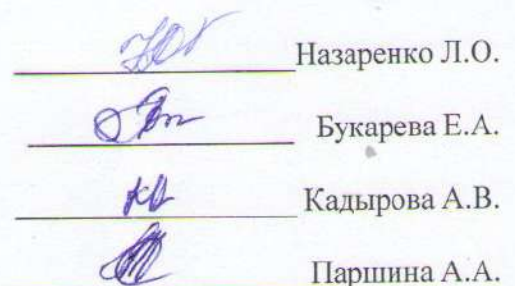 Назаренко Л.О.
Букарева Е.А.
Кадырова А.В.
Паршина А.А.